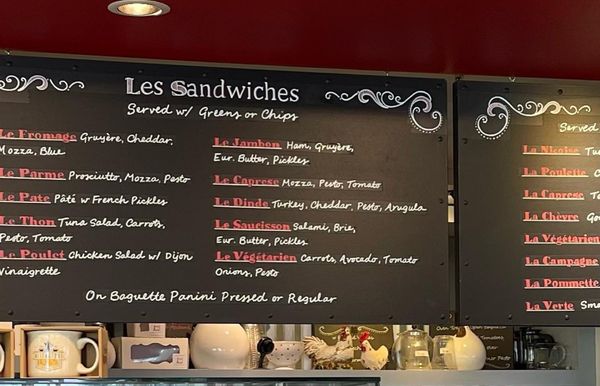 Les Sandwiches
Served w/ Greens or Chips
Le Fromage Gruyère, Cheddar,
Mozza, Blue
Le Parme Prosciutto, Mozza, Pesto
Le Pate Pâté w French Pickles
Le Thon Tuna Salad, Carrots,
Pesto, Tomato
Le Poulet Chicken Salad w/ Dijon
Vinaigrette
Le Jambon Ham, Gruyère,
Eur. Butter, Pickles
Le Caprese Mozza, Pesto, Tomato
Le Dinde Turkey, Cheddar, Pesto, Arugula
Le Saucisson Salami, Brie,
Eur. Butter, Pickles
Le Végétarien Carrots, Avocado, Tomato
Onions, Pesto
On Baguette Panini Pressed or Regular
Served
La Nicoise
La Poulette
La Caprese
La Chèvre
La Végétarien
La Campagne
La Pommette
La Verte